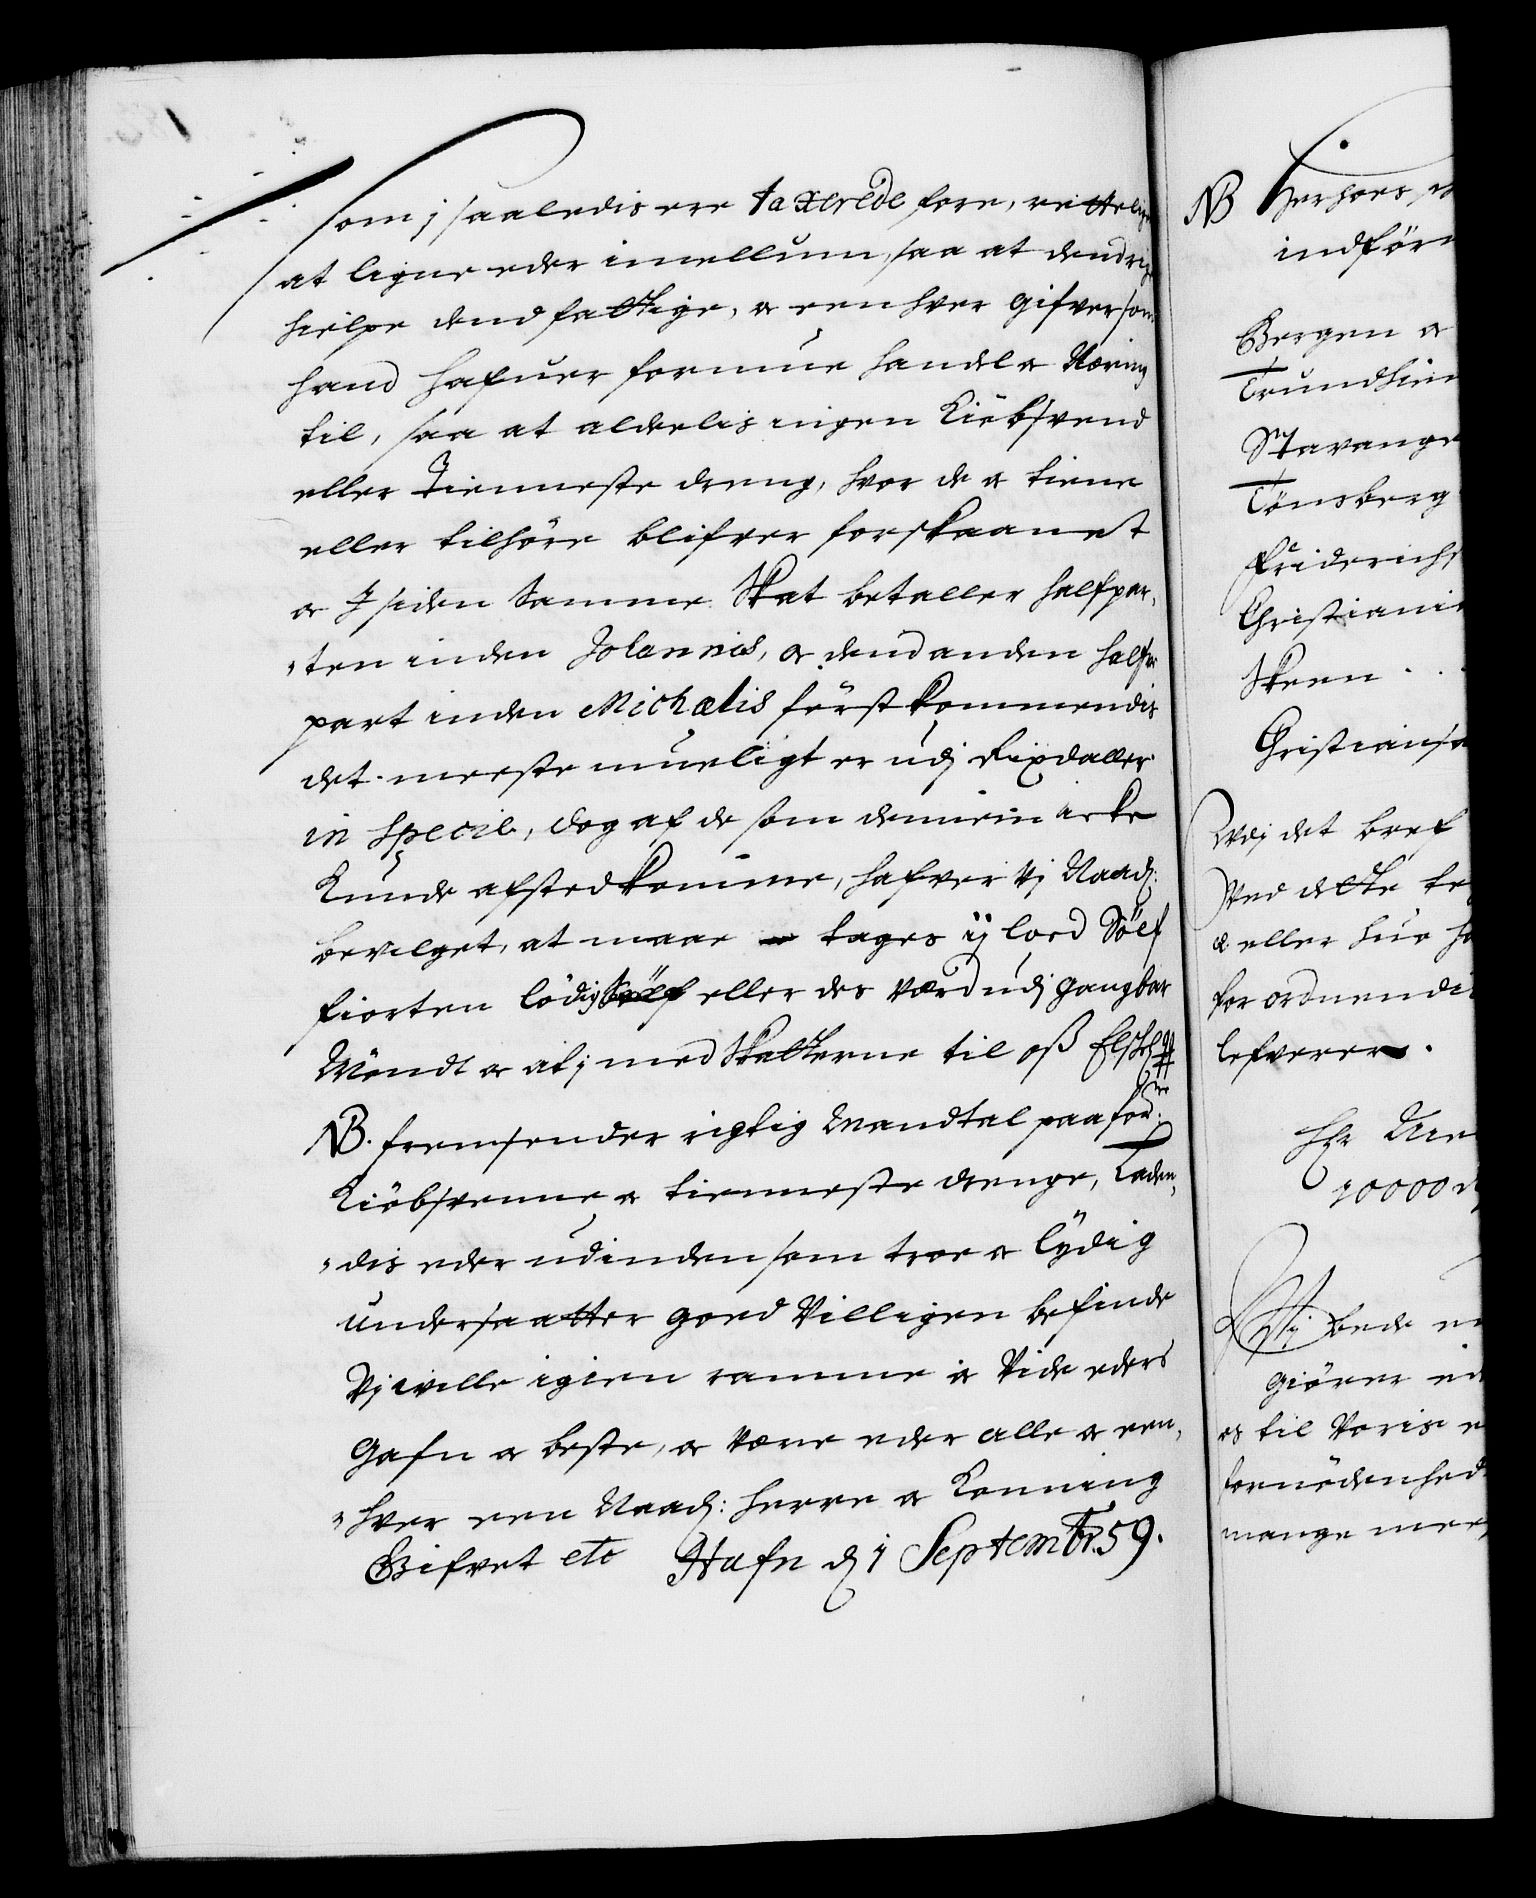 som i saaledis ere taxerede fore, rettelig
at ligne eder imellum, saa at dend rige
hielpe dend fattige, oc een hver gifver som
hand hafuer formue handel oc Næring
til, saa at aldelis ingen Kiöbsvend
eller Tienneste dreng, hvor de oc tiene
eller tilhöre blifver forskaanet
oc I siden samme Skat betaller halfpar,
"ten inden Johannis, oc dend anden half
part inden Michælis först kommendis
det meeste mueligt er udj Rixdaller
in Specie, dog af de som dennem icke
Kunde afsted komme, hafver Vj Naad:
bevilget, at maae tages ij lod Sölf
fiorten lödig Sölf eller des værd udj gangbar
Möndt oc at i med Skatterne til oß
NB. fremsender rigtig Mandtal paa for:ne
Kiöbsvenne oc tienneste drenge, Laden,
"dis eder udinden som troe oc lÿdig
undersaatter goed Villigen befinde
Vj wille igien ramme oc Vide eders
Gafn oc beste, oc være eder alle oc een,
"hver een Naad: herre oc Konning
Gifvet etc Hafn d 1 Septembr. 59.
NB Herhoes
indför
Bergen oc
Trundhiem
Stavange
Tönsberg
Friderichs
Christiani
Skeen . . .
Christiansa
Udj det bref
Ved dette
oc eller
for ordnendi
lefverer.
Hr
10000
Vj bede
giörer
os til Voris
fornödenhed
mange